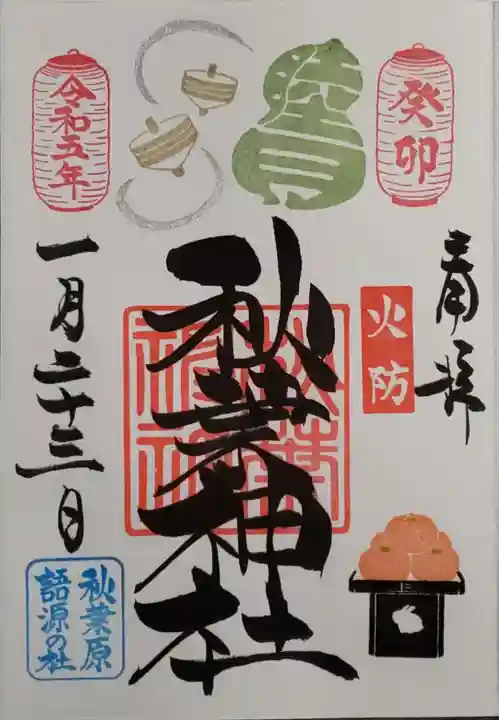 癸卯
奉拝
火防
秋葉神社
秋葉神社
令和五年
一月二十三日
秋葉原
語源の社